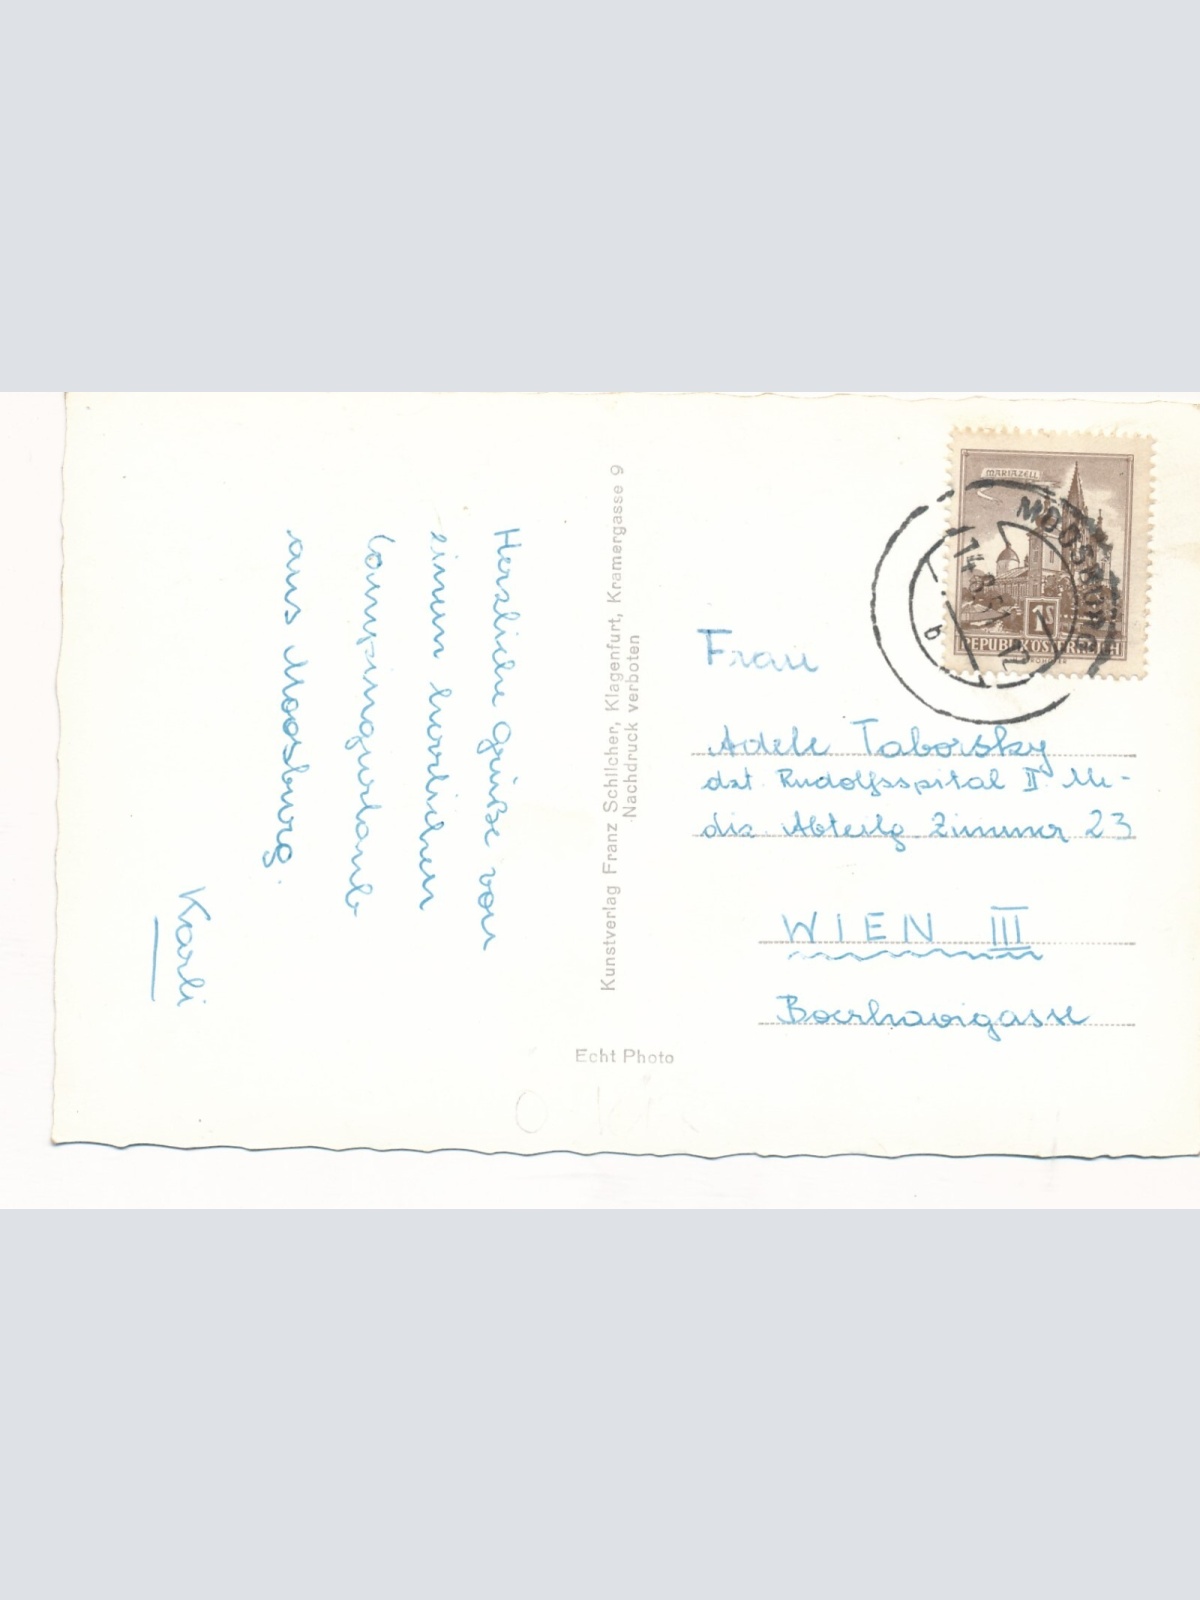 Herzliche Grüße von
einem herrlichen
Campingurlaub
aus Moosburg.
Karli
Kunstverlag Franz Schilcher, Klagenfurt, Kramergasse 9
Nachdruck verboten
Echt Photo
MARIAZELL
1S
REPUBLIK ÖSTERREICH
MOOSBURG
14.8.57 12
b
Frau
Adele Taborsky
dzt. Rudolfsspital II Me-
diz. Abteilg Zimmer 23
WIEN III
Boerhavigasse